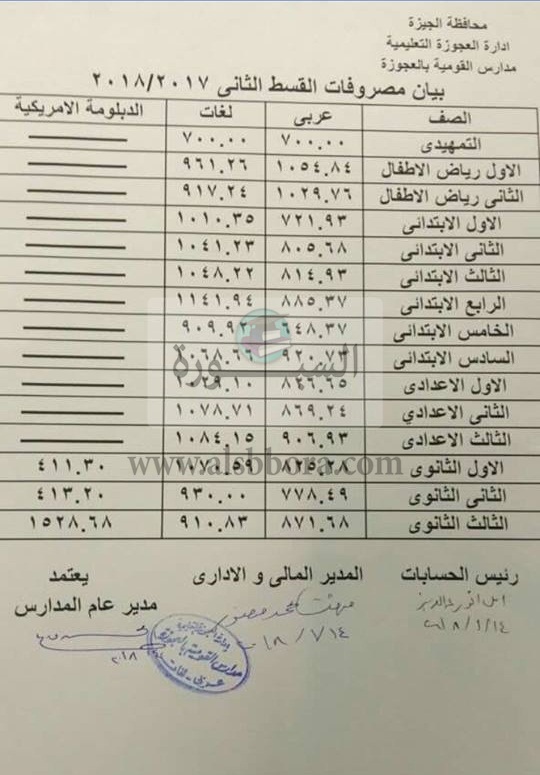 محافظة الجيزة
ادارة العجوزة التعليمية
مدارس القومية بالعجوزة
بيان مصروفات القسط الثانى ٢٠١٨/٢٠١٧
الصف عربى لغات الدبلومة الامريكية
التمهيدى ٧٠٠.٠٠ ٧٠٠.٠٠
الاول رياض الاطفال ١٠٥٤.٨٤ ٩٦١.٢٦
الثانى رياض الاطفال ١٠٢٩.٧٦ ٩١٧.٢٤
الاول الابتدائى ٧٢١.٩٣ ١٠١٠.٣٥
الثانى الابتدائى ٨٠٥.٦٨ ١٠٤١.٢٣
الثالث الابتدائى ٨١٤.٩٣ ١٠٤٨.٢٢
الرابع الابتدائى ٨٨٥.٣٧ ١١٤١.٩٤
الخامس الابتدائى ٦٤٨.٣٧ ٩٠٩.٩٢
السادس الابتدائى ٩٢٠.٧٣ ١٠٦٨.٦٦
الاول الاعدادى ٨٢٦.٦٥ ١٠٢٩.١٠
الثانى الاعدادي ٨٦٩.٢٤ ١٠٧٨.٧١
الثالث الاعدادى ٩٠٦.٩٣ ١٠٨٤.١٥
الاول الثانوى ٨٢٥.٢٨ ١٠٧١.٥٩ ٤١١.٣٠
الثانى الثانوى ٧٧٨.٤٩ ٩٣٠.٠٠ ٤١٣.٢٠
الثالث الثانوى ٨٧١.٦٨ ٩١٠.٨٣ ١٥٢٨.٦٨
السبورة
www.alsbbora.com
رئيس الحسابات المدير المالى و الادارى يعتمد
مدير عام المدارس
مدارس القومية بالعجوزة
عربى - لغات
٢٠١٨